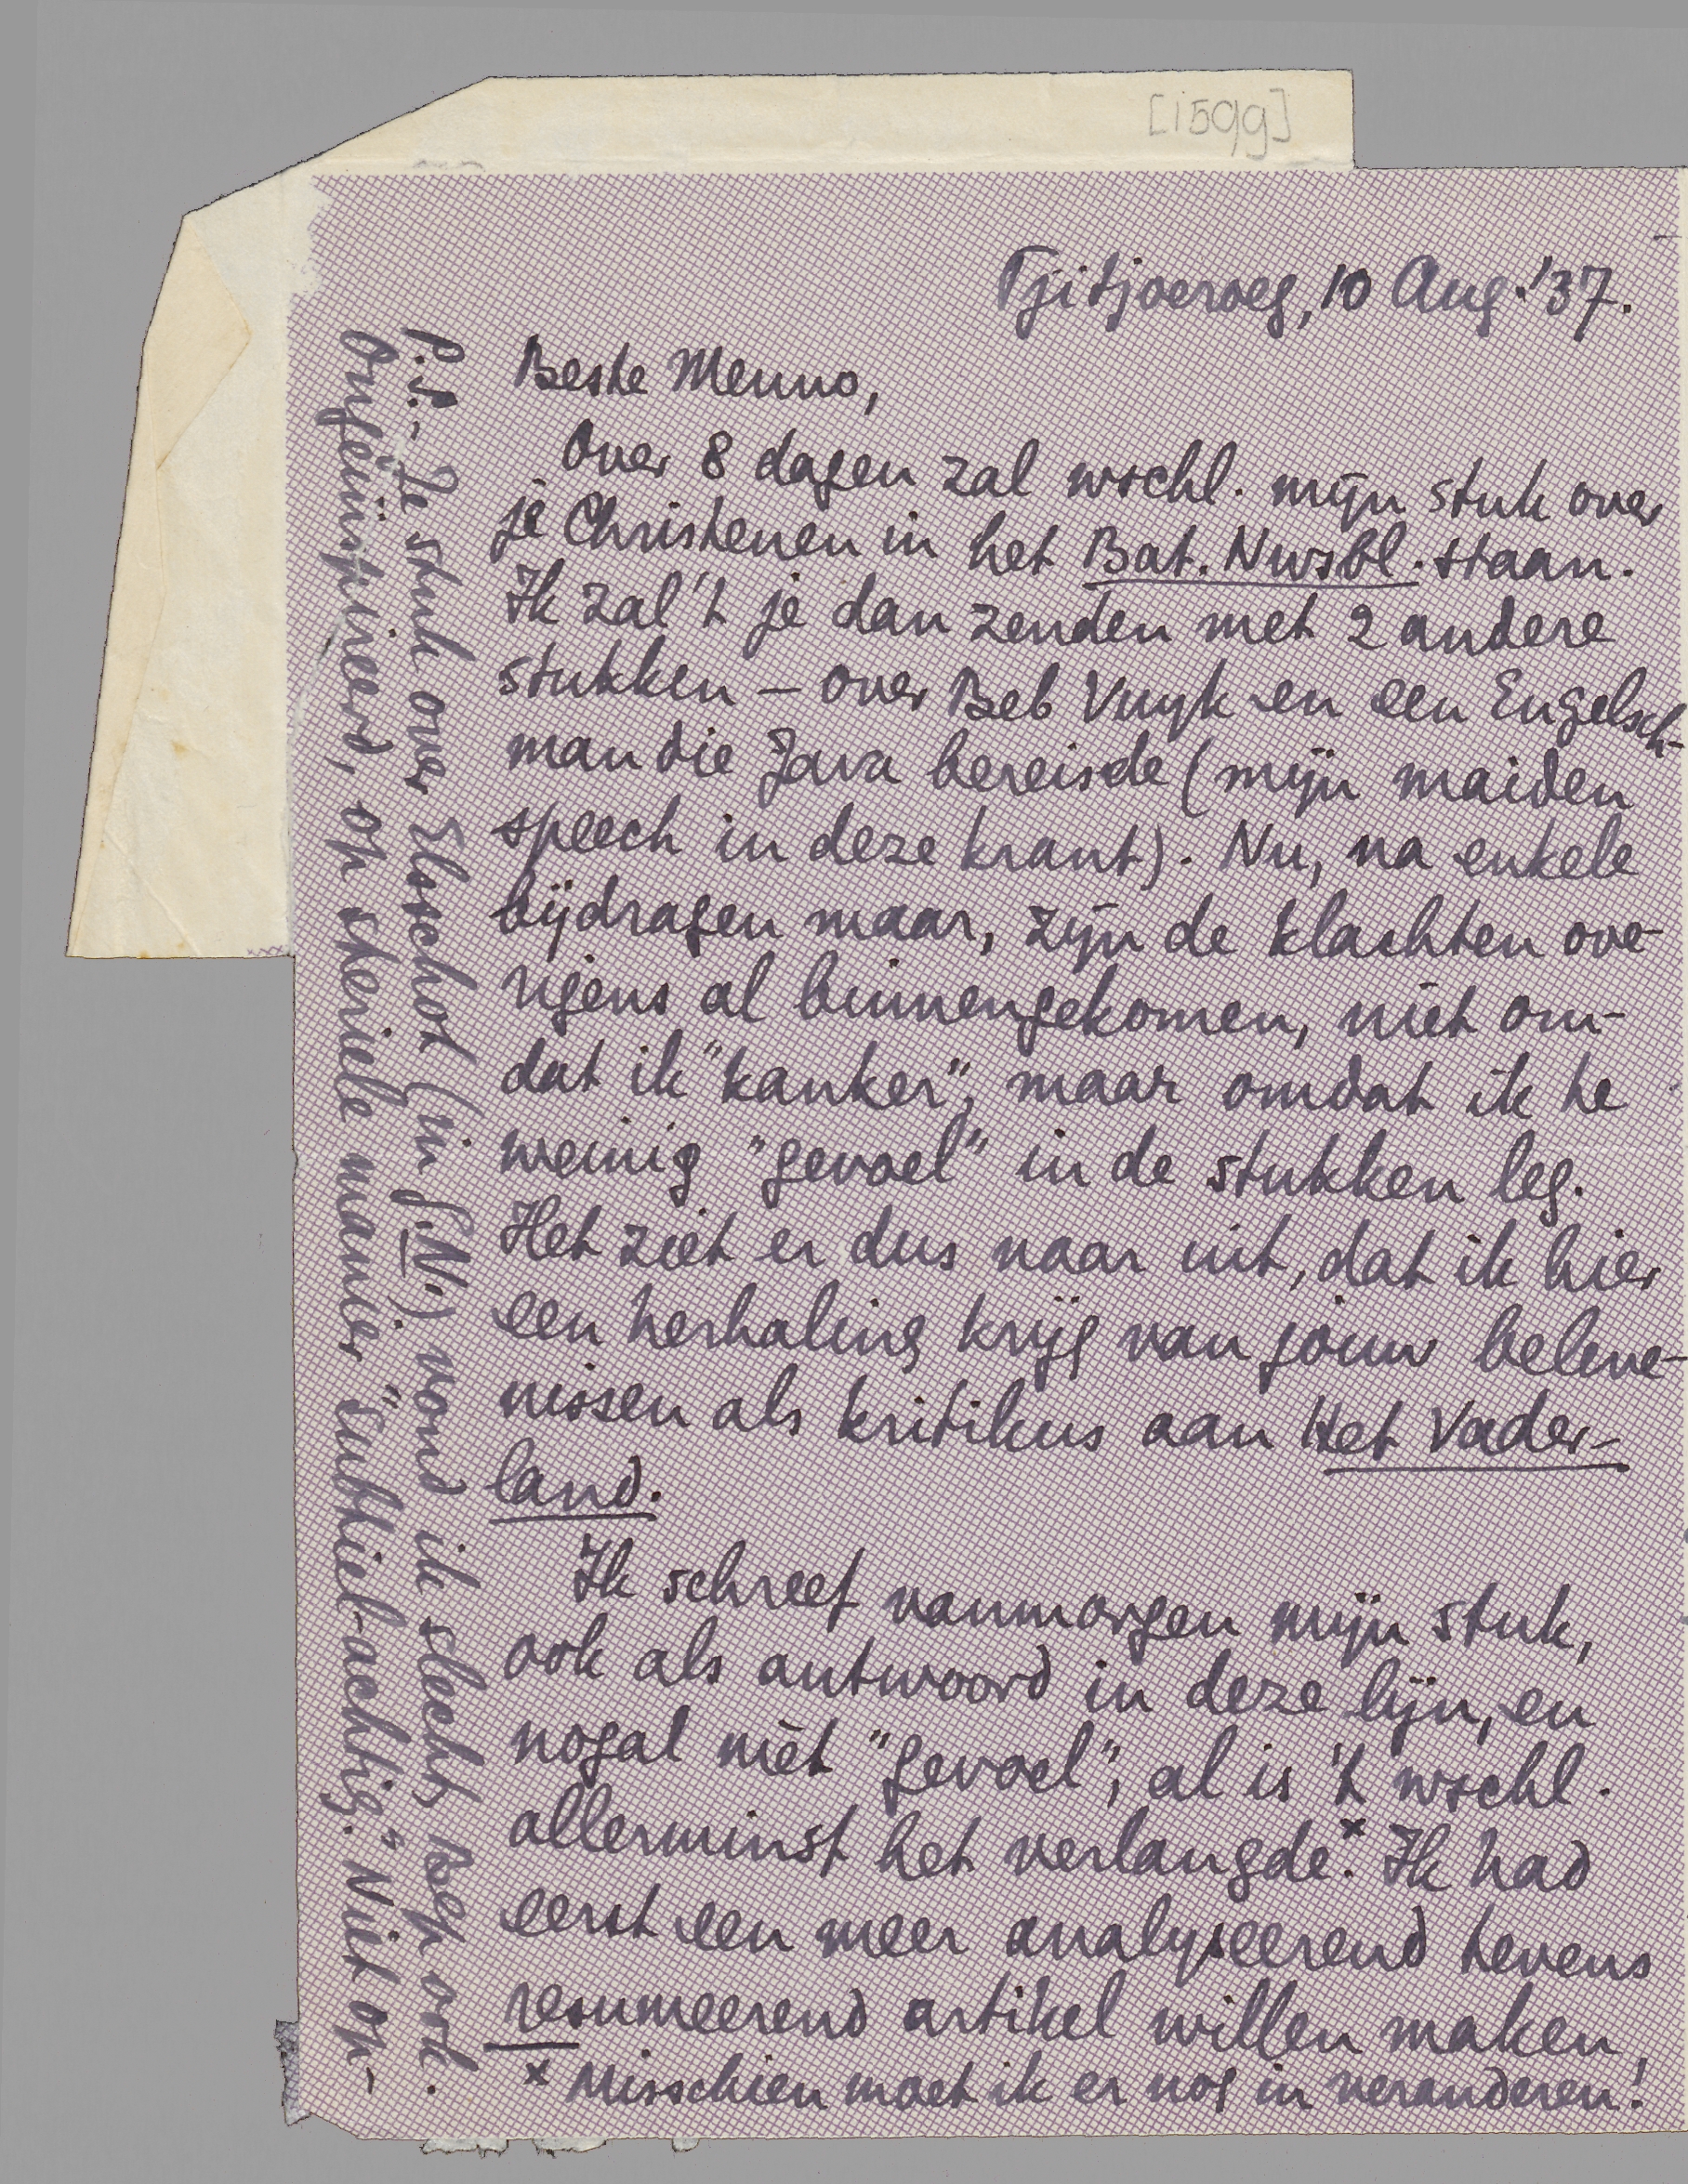 [1599]
Tjitjoeroeg, 10 Aug. '37.
Beste Menno,
Over 8 dagen zal wschl. mijn stuk over
je Christenen in het Bat. Nwsbl. staan.
Ik zal 't je dan zenden met 2 andere
stukken – over Beb Vuyk en een Engelsch-
man die Java bereisde (mijn maiden
speech in deze krant). Nu, na enkele
bijdragen maar, zijn de klachten ove-
rigens al binnengekomen, niet om-
dat ik "kanker", maar omdat ik te
weinig "gevoel" in de stukken leg.
Het ziet er dus naar uit, dat ik hier
een herhaling krijg van jouw beleve-
nissen als kritikus aan Het Vader-
land.
Ik schreef vanmorgen mijn stuk,
ook als antwoord in deze lijn, en
nogal mèt "gevoel", al is 't wschl.
allerminst het verlangde.x Ik had
eerst een meer analyseerend tevens
resumeerend artikel willen maken,
x Misschien moet ik er nog in veranderen!
P.S. – Je stuk over Elsschot (in G.N.) vond ik slecht; Bep ook.
Ongeïnspireerd, op steriele manier "subtiel-achtig." Niet op-